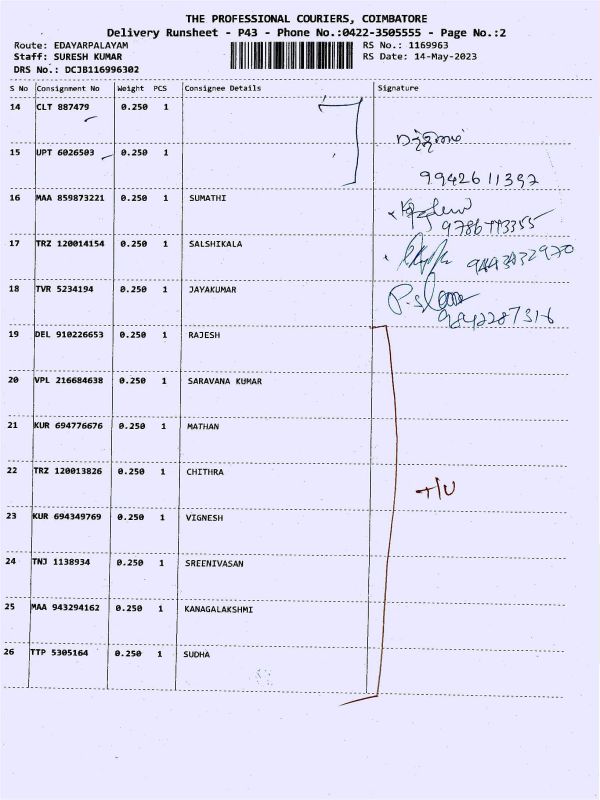 THE PROFESSIONAL COURIERS, COIMBATORE
Delivery Runsheet - P43 - Phone No.:0422-3505555 - Page No.:2
Route: EDAYARPALAYAM RS No.: 1169963
Staff: SURESH KUMAR RS Date: 14-May-2023
DRS No.: DCJB116996302
S No Consignment No Weight PCS Consignee Details Signature
14 CLT 887479 0.250 1
15 UPT 6026503 0.250 1
9942611392
16 MAA 859873221 0.250 1 SUMATHI
17 TRZ 120014154 0.250 1 SALSHIKALA
18 TVR 5234194 0.250 1 JAYAKUMAR
19 DEL 910226653 0.250 1 RAJESH
20 VPL 216684638 0.250 1 SARAVANA KUMAR
21 KUR 694776676 0.250 1 MATHAN
22 TRZ 120013826 0.250 1 CHITHRA
T/U
23 KUR 694349769 0.250 1 VIGNESH
24 TNJ 1138934 0.250 1 SREENIVASAN
25 MAA 943294162 0.250 1 KANAGALAKSHMI
26 TTP 5305164 0.250 1 SUDHA